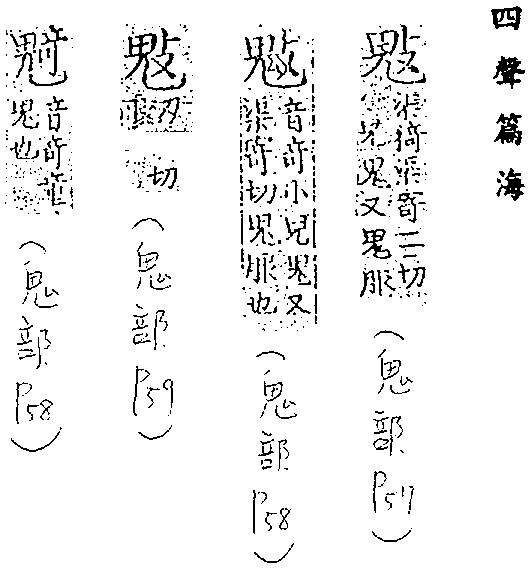 四聲篇海
鬾
渠綺渠奇二切
小兒鬼又鬼服
（鬼部P57）
音奇小兒鬼又
渠奇切鬼服也
（鬼部P58）
切
（鬼部P59）
音奇
鬼也
（鬼部P58）